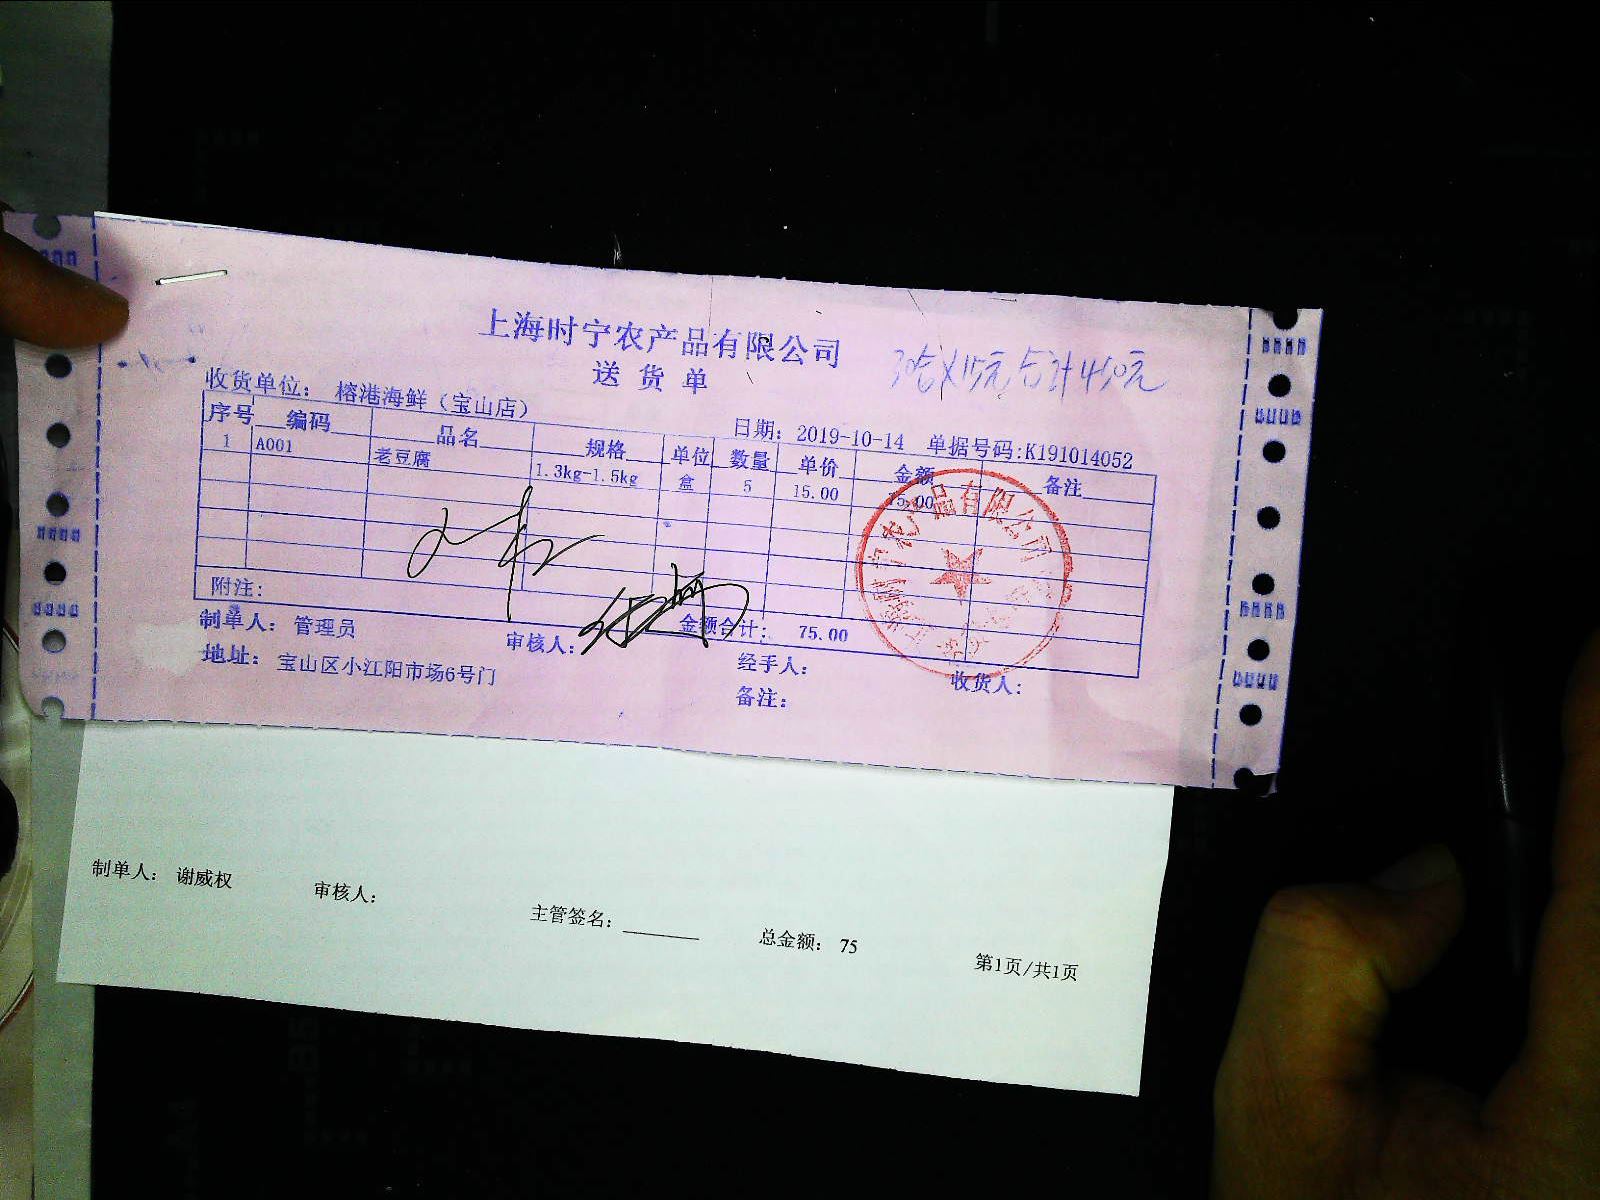 上海时宁农产品有限公司
送货单
收货单位: 榕港海鲜(宝山店)
日期: 2019-10-14 单据号码:K191014052
序号 编码 品名 规格 单位 数量 单价 金额 备注
1 A001 老豆腐 1.3kg-1.5kg 盒 5 15.00 75.00
附注:
金额合计: 75.00
制单人: 管理员 审核人: 经手人: 收货人:
地址: 宝山区小江阳市场6号门 备注:
制单人: 谢威权 审核人: 主管签名: 总金额: 75 第1页/共1页